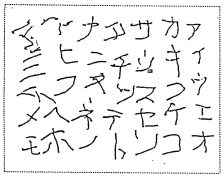 アイウエオ
カキクケコ
サシスセソ
タチツテト
ナニヌネノ
ハヒフヘホ
ミメモ